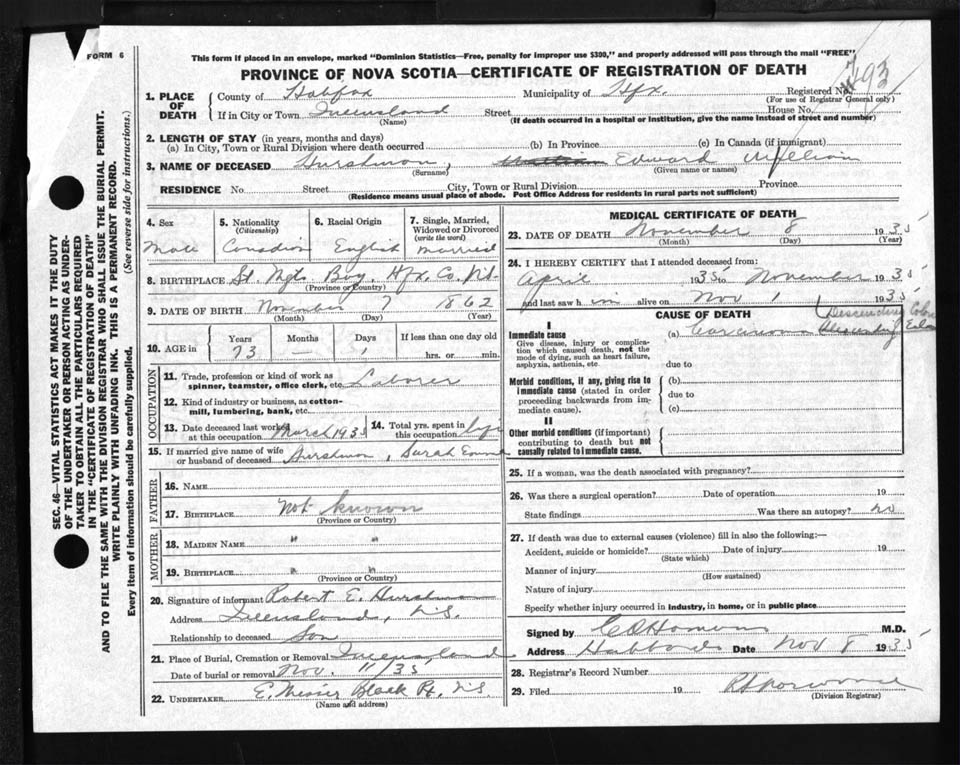 FORM 6
This form if placed in an envelope, marked "Dominion Statistics—Free, penalty for improper use $300," and properly addressed will pass through the mail "FREE"
PROVINCE OF NOVA SCOTIA—CERTIFICATE OF REGISTRATION OF DEATH
793
1. PLACE OF DEATH
County of Halifax Municipality of Hfx. Registered No.
(For use of Registrar General only)
If in City or Town Queensland Street House No.
(Name) (If death occurred in a hospital or institution, give the name instead of street and number)
2. LENGTH OF STAY (in years, months and days)
(a) In City, Town or Rural Division where death occurred (b) In Province (c) In Canada (if immigrant)
3. NAME OF DECEASED Hurshman, Edward William
(Surname) (Given name or names)
RESIDENCE No. Street City, Town or Rural Division Province
(Residence means usual place of abode. Post Office Address for residents in rural parts not sufficient)
4. Sex Male
5. Nationality (Citizenship) Canadian
6. Racial Origin English
7. Single, Married, Widowed or Divorced (write the word) Married
8. BIRTHPLACE St. Mgts. Bay, Hfx. Co. N.S.
(Province or Country)
9. DATE OF BIRTH November 7 1862
(Month) (Day) (Year)
10. AGE in Years Months Days If less than one day old
73 — 1 hrs. or min.
OCCUPATION
11. Trade, profession or kind of work as spinner, teamster, office clerk, etc. Laborer
12. Kind of industry or business, as cotton-mill, lumbering, bank, etc.
13. Date deceased last worked at this occupation March 1935
14. Total yrs. spent in this occupation life
15. If married give name of wife or husband of deceased Hurshman, Sarah
FATHER
16. NAME
17. BIRTHPLACE Not known
(Province or Country)
MOTHER
18. MAIDEN NAME " "
19. BIRTHPLACE " "
(Province or Country)
20. Signature of informant Robert E. Hurshman
Address Queensland, N.S.
Relationship to deceased Son
21. Place of Burial, Cremation or Removal Queensland
Date of burial or removal Nov. 11/35
22. UNDERTAKER E. Messer Black Pt. N.S.
(Name and address)
MEDICAL CERTIFICATE OF DEATH
23. DATE OF DEATH November 8 1935
(Month) (Day) (Year)
24. I HEREBY CERTIFY that I attended deceased from:
April 1935 to November 1935
and last saw him alive on Nov 1 1935
CAUSE OF DEATH
I
Immediate cause (a) Carcinoma Descending Colon
Give disease, injury or complication which caused death, not the mode of dying, such as heart failure, asphyxia, asthenia, etc.
due to
Morbid conditions, if any, giving rise to immediate cause (stated in order proceeding backwards from immediate cause).
(b)
due to
(c)
II
Other morbid conditions (if important) contributing to death but not causally related to immediate cause.
25. If a woman, was the death associated with pregnancy?
26. Was there a surgical operation? Date of operation 19
State findings Was there an autopsy? no
27. If death was due to external causes (violence) fill in also the following:—
Accident, suicide or homicide? Date of injury 19
(State which)
Manner of injury
(How sustained)
Nature of injury
Specify whether injury occurred in industry, in home, or in public place
Signed by M.D.
Address Hubbards Date Nov 8 1935
28. Registrar's Record Number
29. Filed 19
(Division Registrar)
SEC. 46—VITAL STATISTICS ACT MAKES IT THE DUTY
OF THE UNDERTAKER OR PERSON ACTING AS UNDER-
TAKER TO OBTAIN ALL THE PARTICULARS REQUIRED
IN THE "CERTIFICATE OF REGISTRATION OF DEATH"
AND TO FILE THE SAME WITH THE DIVISION REGISTRAR WHO SHALL ISSUE THE BURIAL PERMIT.
WRITE PLAINLY WITH UNFADING INK. THIS IS A PERMANENT RECORD.
Every item of information should be carefully supplied. (See reverse side for instructions.)